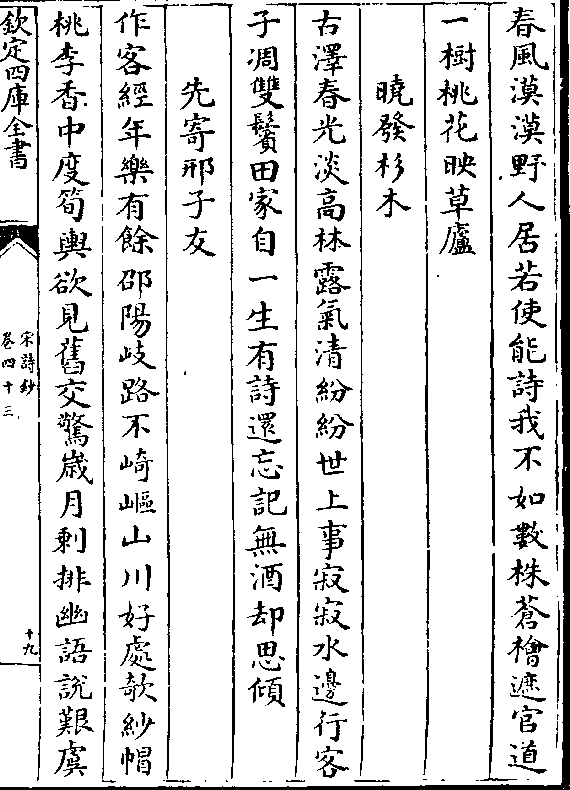 春風漠漠野人居若使能詩我不如數株蒼檜遮官道
一樹桃花映草廬
曉發杉木
古澤春光淡高林露氣清紛紛世上事寂寂水邊行客
子凋雙鬢田家自一生有詩還忘記無酒却思傾
先寄邢子友
作客經年樂有餘邵陽岐路不崎嶇山川好處欹紗帽
桃李香中度筍輿欲見舊交驚歲月剩排幽語說艱虞
欽定四庫全書
宋詩鈔
卷四十三
十九